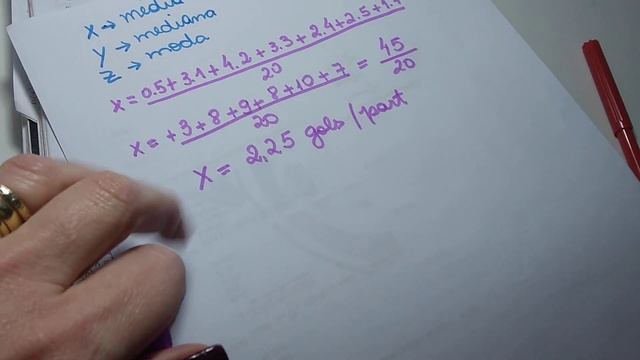 X → media
Y → mediana
Z → moda
x = 0.5 + 3.1 + 4.2 + 3.3 + 2.4 + 2.5 + 1.7
20
x = + 3 + 8 + 9 + 8 + 10 + 7 = 45
20 20
X = 2,25 gols / part